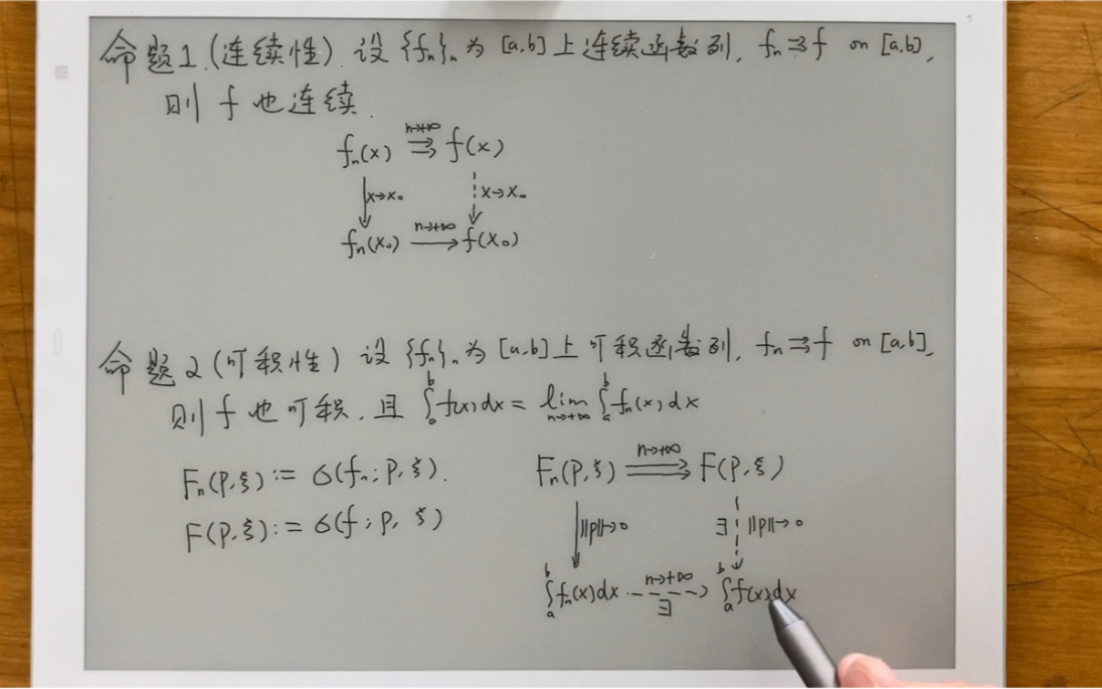 命题1.(连续性) 设 {fₙ}ₙ 为 [a,b] 上连续函数列, fₙ⇉f on [a,b],
则 f 也连续.
fₙ(x) ⇉ f(x) n→+∞
x→x₀ x→x₀
fₙ(x₀) → f(x₀) n→+∞
命题2(可积性) 设 {fₙ}ₙ 为 [a,b] 上可积函数列, fₙ⇉f on [a,b],
则 f 也可积, 且 ∫ₐᵇ f(x)dx = lim_{n→+∞} ∫ₐᵇ fₙ(x)dx
Fₙ(P,ξ) := σ(fₙ;P,ξ). Fₙ(P,ξ) ⇉ F(P,ξ) n→+∞
F(P,ξ) := σ(f;P,ξ) ‖P‖→0 ∃ ‖P‖→0
∫ₐᵇ fₙ(x)dx ⇢ ∫ₐᵇ f(x)dx n→+∞ ∃